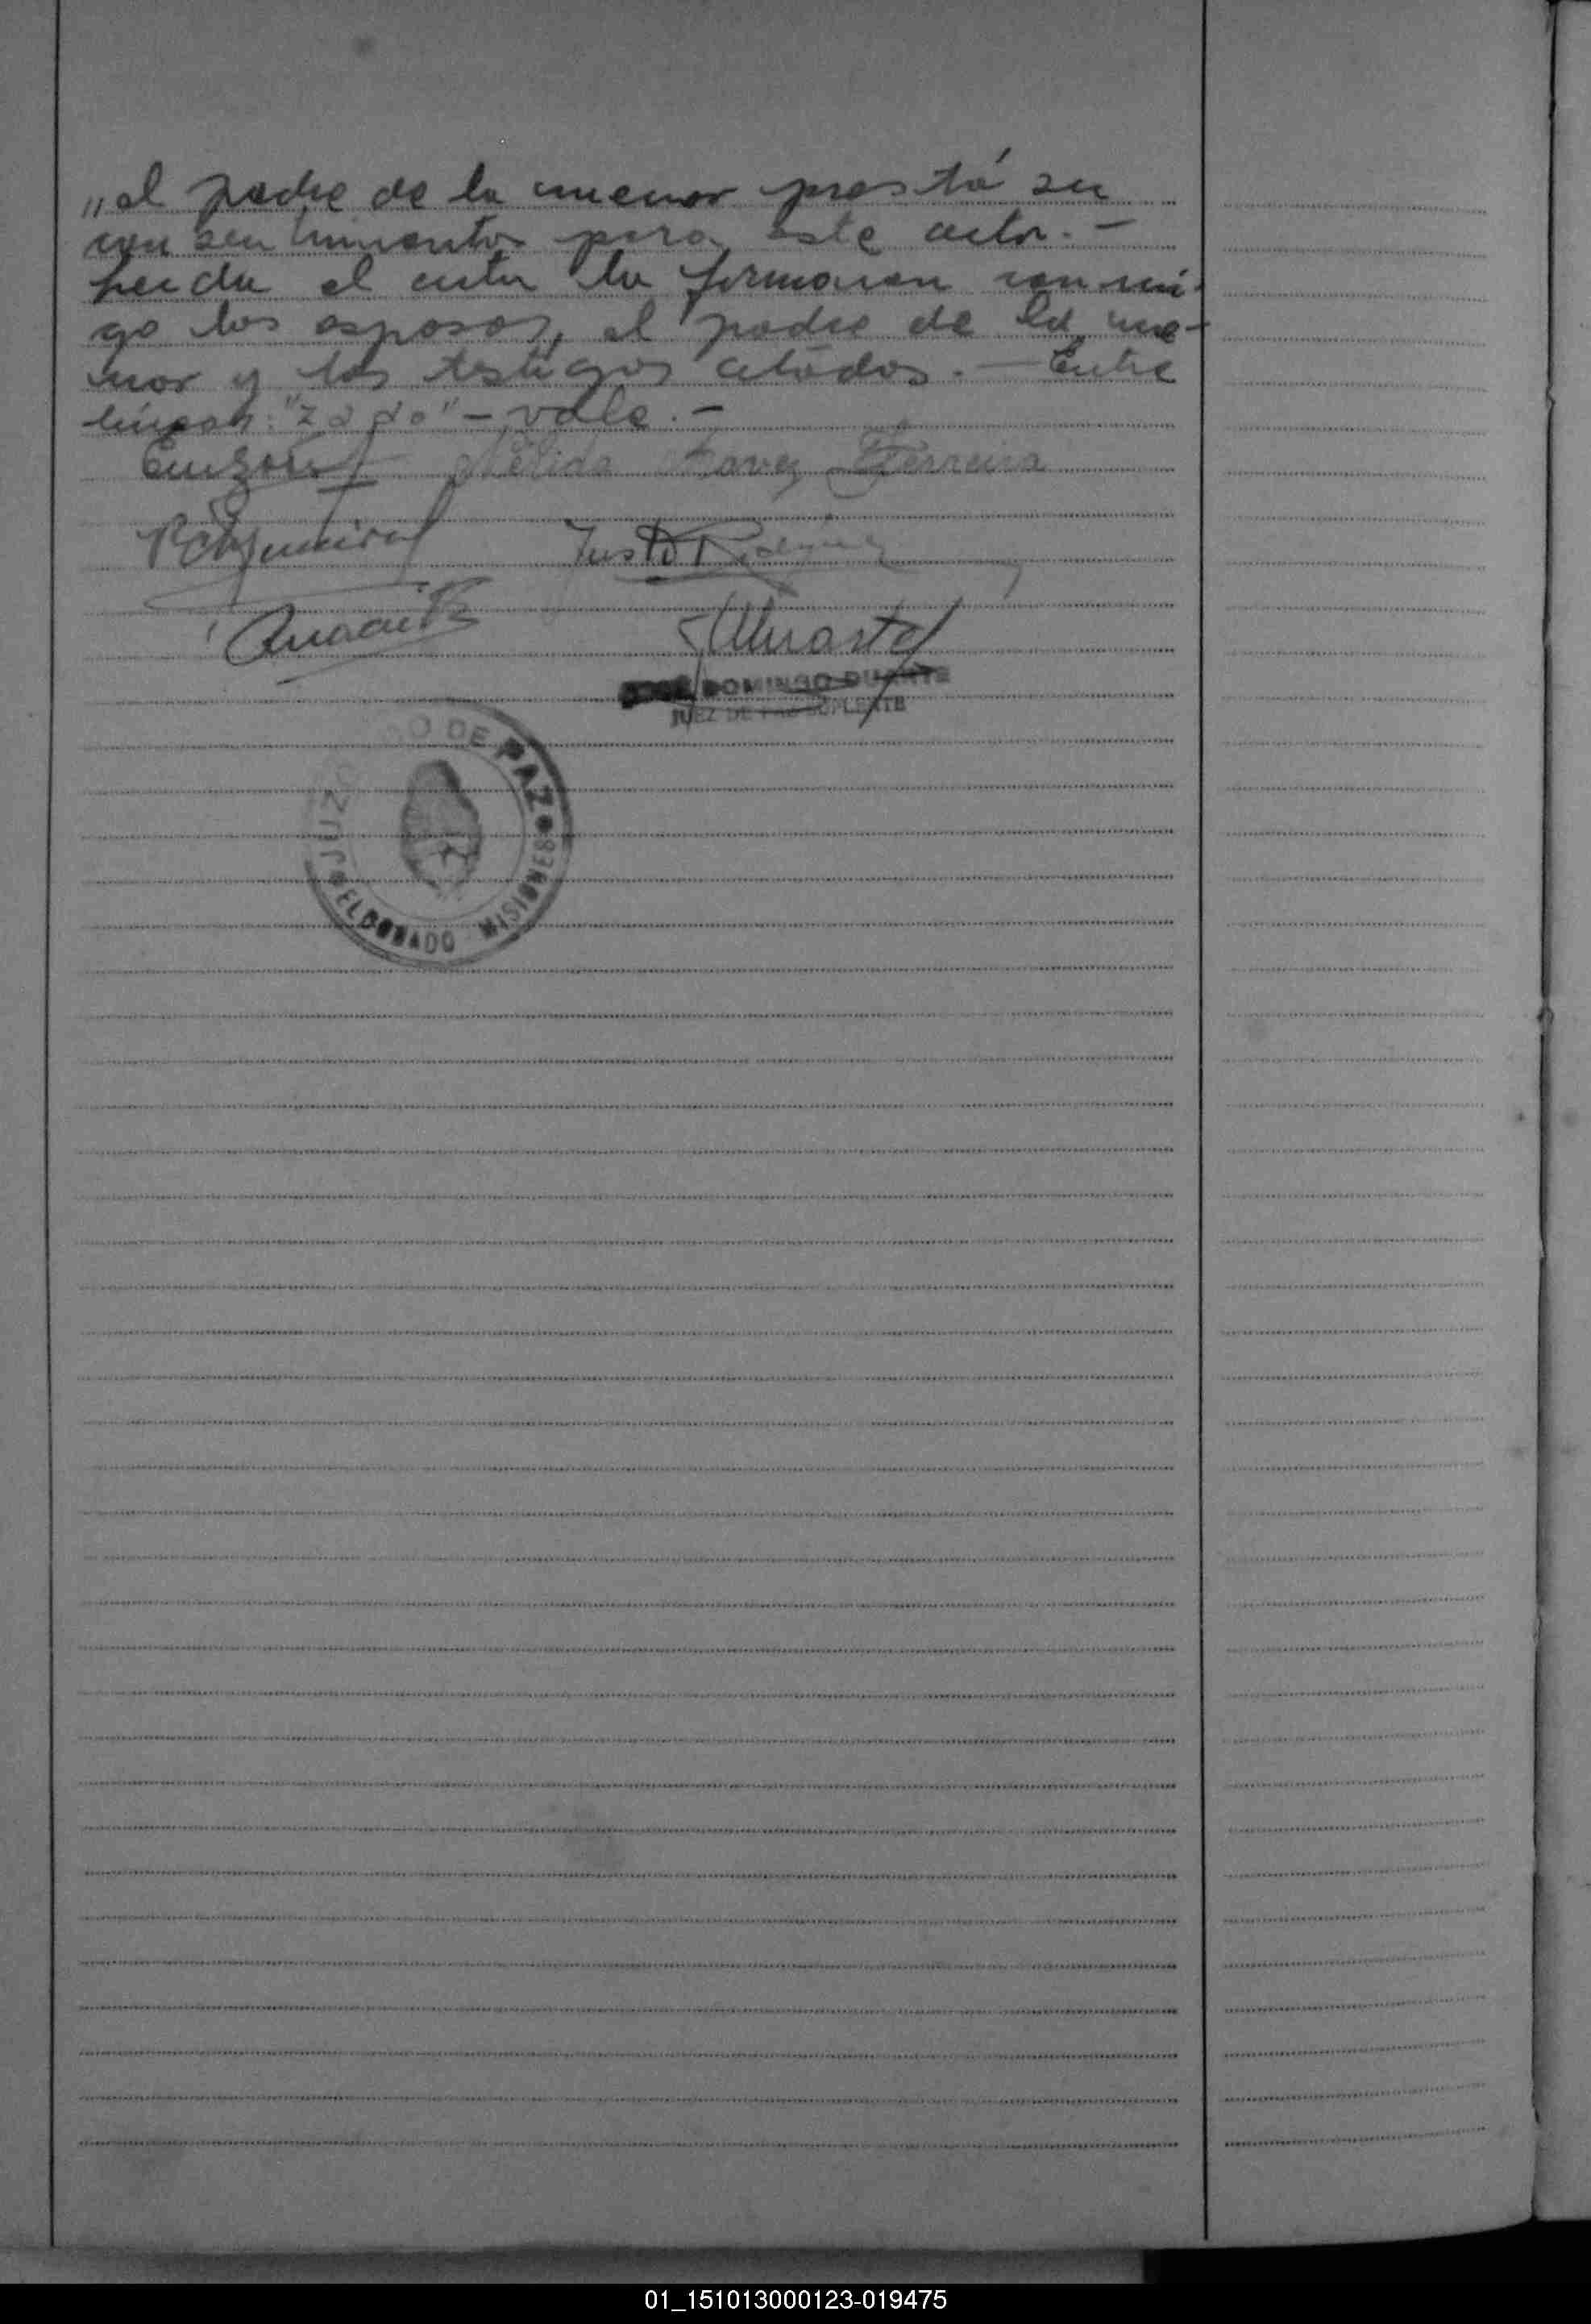 „el padre de la menor prestá su
consentimiento para este acto.-
Leída el acta la firmaron conmi-
go los esposos, el padre de la me-
nor y los testigos citados.- Entre
líneas: "zado" - vale.-
Nélida Chavez Ferreira
Justo
JOSÉ DOMINGO DUARTE
JUEZ DE PAZ SUPLENTE
JUZGADO DE PAZ
ELDORADO - MISIONES
01_151013000123-019475